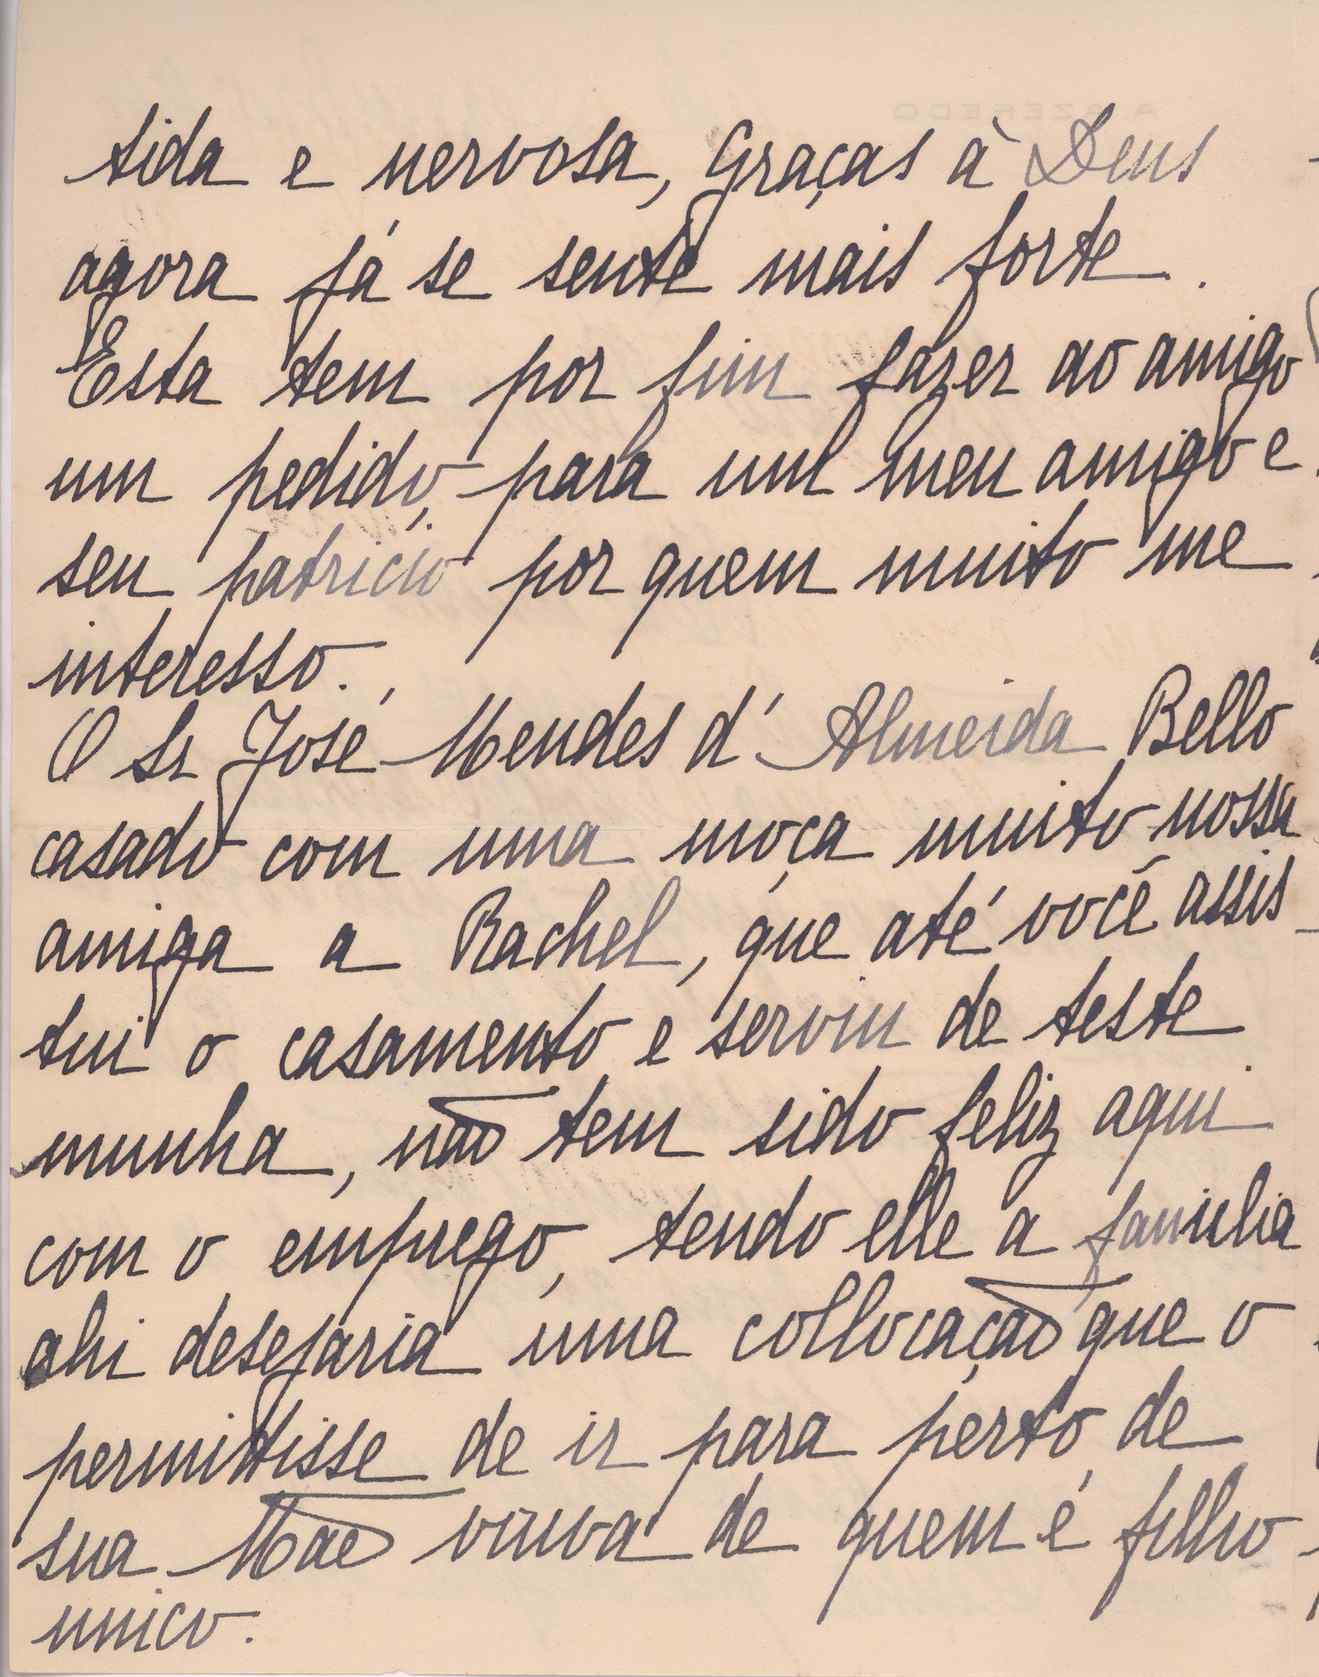 tida e nervosa, Graças à Deus
agora já se sente mais forte.
Esta tem por fim fazer ao amigo
um pedido, para um meu amigo e
seu patricio por quem muito me
interesso.
O Sr José Mendes d'Almeida Bello
casado com uma moça muito nossa
amiga a Rachel, que até você assis
tui o casamento e serviu de teste
munha, não tem sido feliz aqui
com o emprego, tendo elle a familia
ahi desejaria uma collocação que o
permittisse de ir para perto de
sua Mãe viuva de quem é filho
unico.